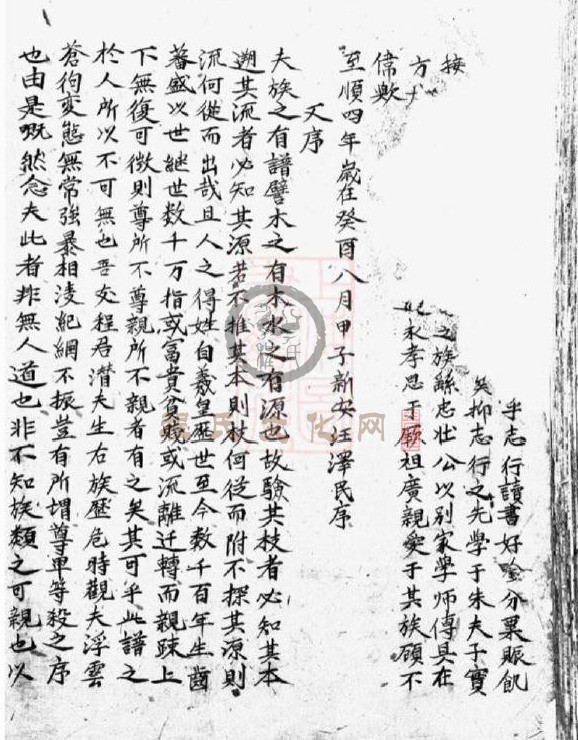 乎志行讀書好吟分粟賑飢
矣抑志行之先學于朱夫子實
之族繇忠壯公以别家學師傳具在
永孝思于厥祖廣親愛于其族顾不
接
方
偉歟
至順四年歲在癸酉八月甲子新安汪澤民序
又序
夫族之有譜譬木之有本水之有源也故驗其枝者必知其本
遡其流者必知其源若不推其本則枝何從而附不探其源則
流何從而出哉且人之得姓自羲皇歷世至今数千百年生齒
蕃盛以世継世数千万指或富貴貧賤或流離迁轉而親踈上
下無復可徴則尊所不尊親所不親者有之矣其可乎此譜之
於人所以不可無也吾友程君潛夫生右族歷危時觀夫浮雲
蒼狗変態無常強暴相淩紀綱不振豈有所谓尊卑等殺之序
也由是嘅然念夫此者非無人道也非不知族類之可親也以